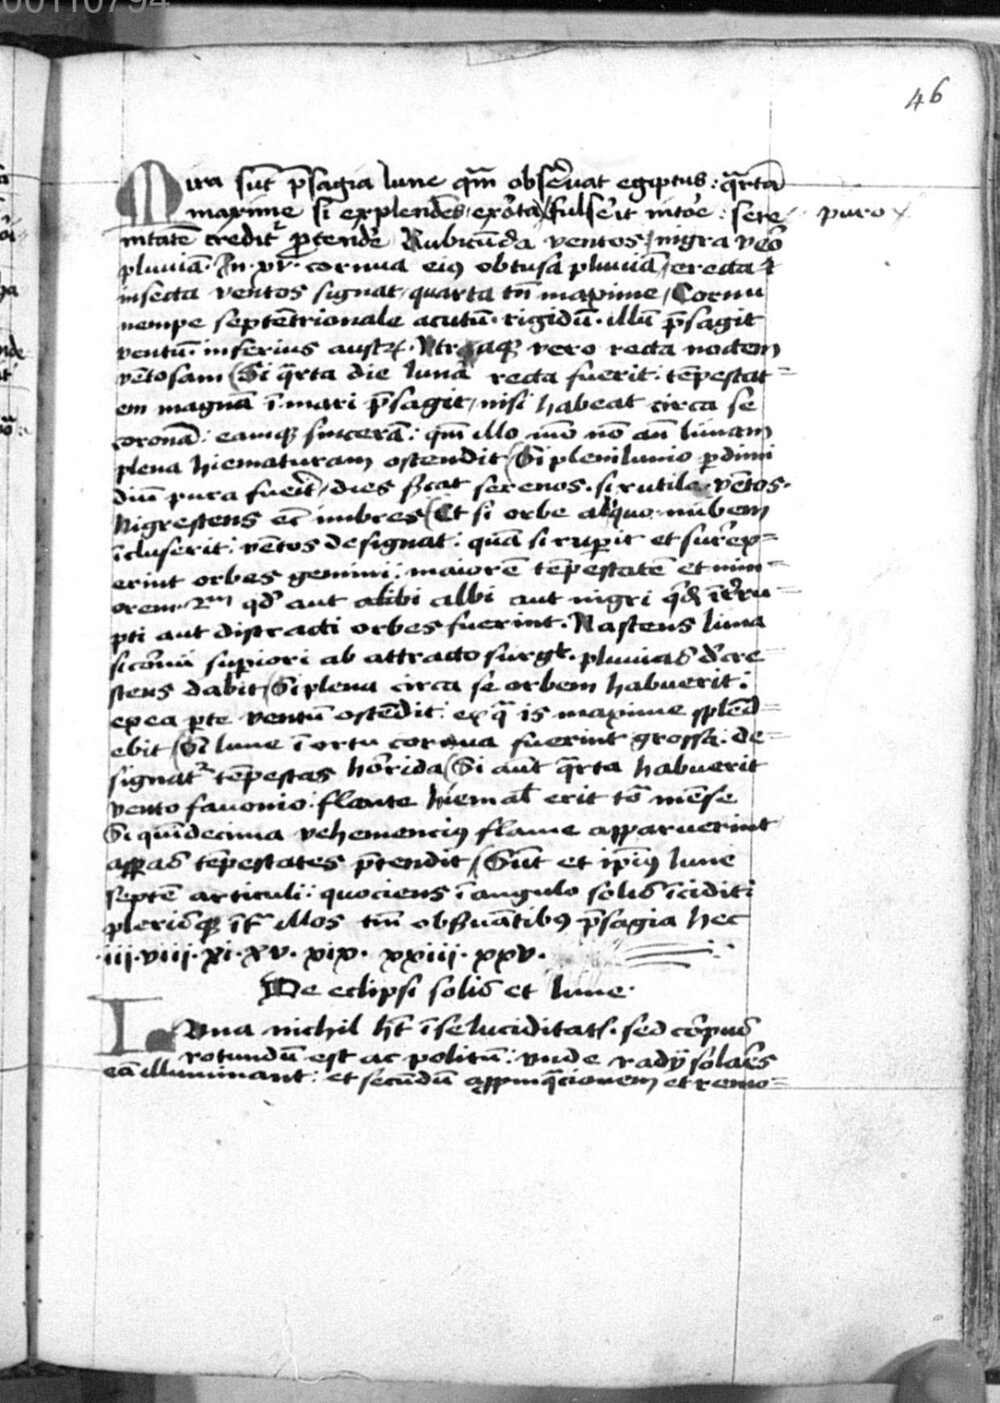 00110794
46
Mira sūt p̄sagia lune qm̄ obs̄eruat egiptus : q̄rta
maxime si explendēs exo͛ta fulse͛it nito͛e : sere
puro
nitatē creditᷣ p̄tende͛ Rubicūda ventos / nigra ve͛o
pluuiā · In · xv · cornua eiꝰ obtusa pluuiā / erecta ⁊
infecta ventos signat / quarta tn̄ maxime / Cornu
nempe septētrionale acutū · rigidū · illū p̄sagit
ventū · inferius austꝝ · Vtraqꝫ vero recta noctem
vētosam Si q̄rta die luna recta fuerit : tēpestat=
em magnā ī mari p̄sagit / nisi habeat circa se
coronā : eamqꝫ sincerā : qm̄ illo mō nō an̄ lunam
plena hiematuram ostendit Si plenilunio ꝑ dimi
diū pura fue͛it / dies s̄cat serenos · si rutila · vētos ·
Nigrescens ec̄ imbres Et si orbe aliquo nubem
īcluserit : vētos designat : quā si ruꝑit et surrex=
erint orbes gemini : maiorē tēpestatē et min=
orem
qd̄ aut alibi albi aut nigri īt͛ru=
pti aut distracti orbes fuerint · Nascens luna
si cornu suꝑiori ab attracto surgit · pluuias dc͛re=
scens dabit Si plena circa se orbem habuerit :
ex ea ꝑte ventū ostēdit : ex q̄ is maxime splēd=
ebit Si lune ī ortu cornua fuerint grossa : de=
signatᷣ tēpestas horrida Si aūt q̄rta habuerit
vento fauonio flante hiemal erit to͛ mēse
Si quīdecima vehemenciꝰ flame apparuerint
asꝑas tēpestates p̄tendit / Sūt et ip̄iꝰ lune
septē articuli : quociens ī angulo solis īcidit :
plerisqꝫ īt͛ illos tm̄ obs̄uātibꝰ p̄sagia hec
· iii · viii · xi · xv · xix · xxiii · xxv ·
De eclipsi solis et lune ·
Luna nichil hꝫ ī se luciditatꝭ · sed co͛pus
rotundū est ac politū : vnde radij solares
eā illuminant : et secūdū appinq̄cionem et remo=